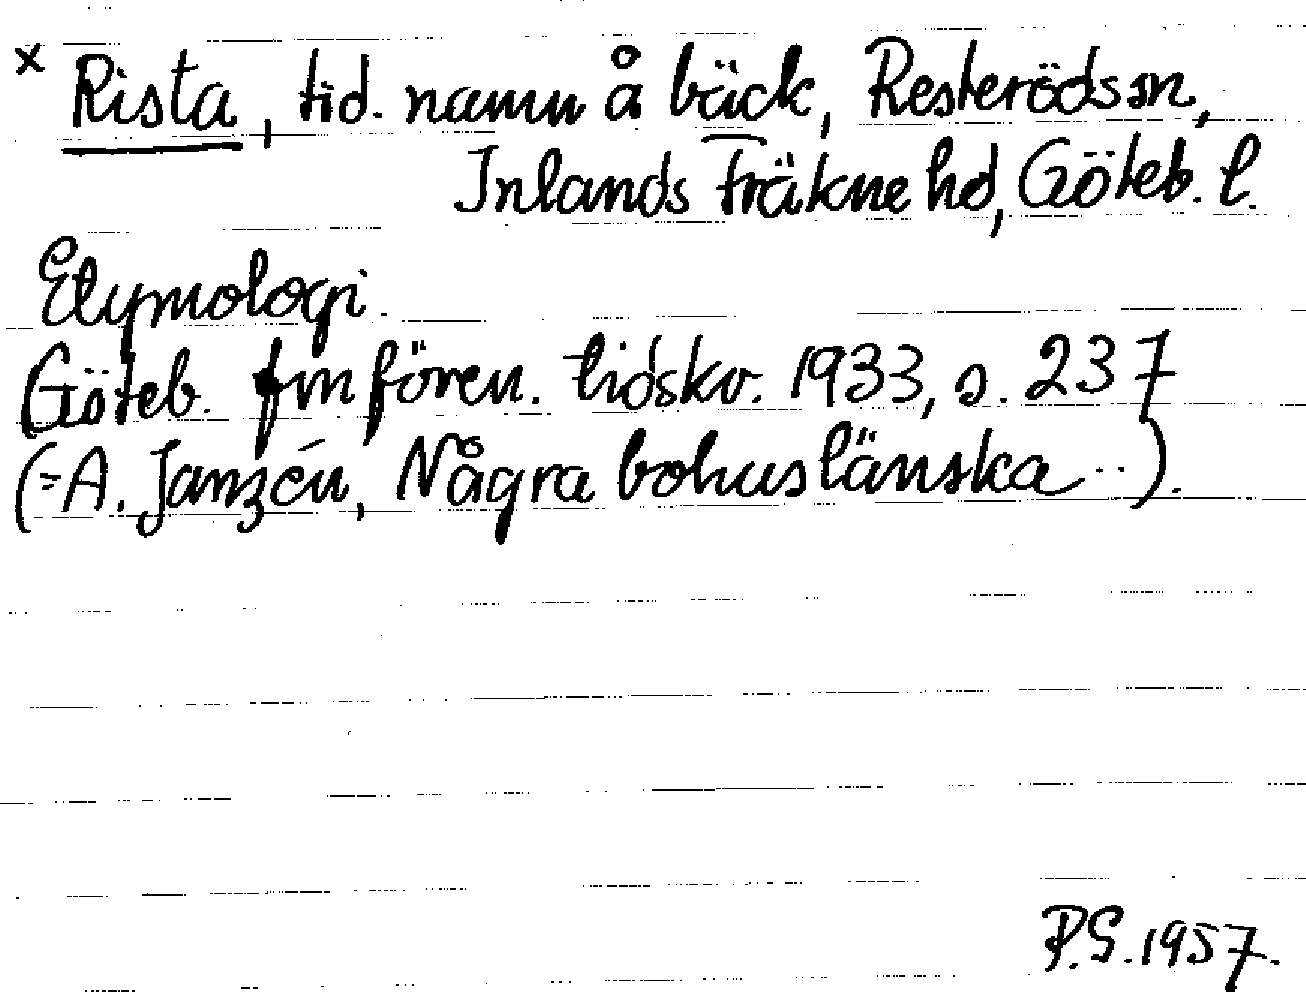 x Rista, tid. namn å bäck, Resterödssn,
Inlands Fräkne hd, Göteb. l.
Etymologi.
Göteb. fmfören. tidskr. 1933, s. 237
(=A. Janzén, Några bohuslänska...).
P.S. 1957.